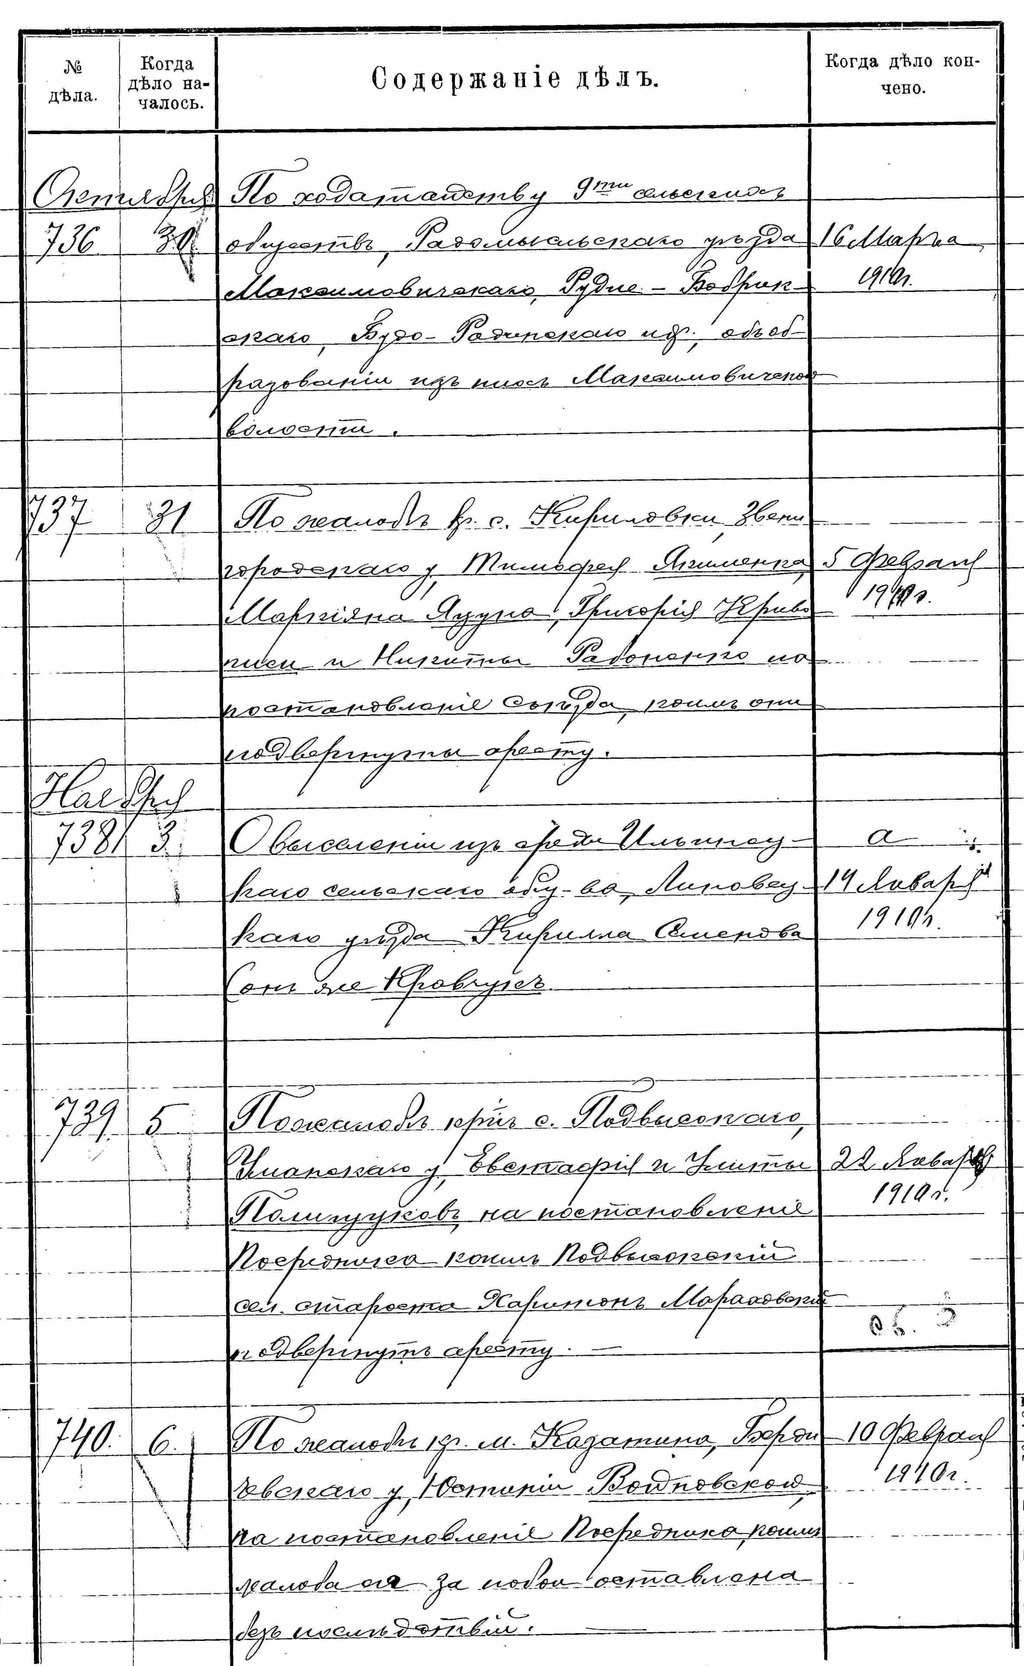 № дѣла.
Когда дѣло началось.
Содержаніе дѣлъ.
Когда дѣло кончено.
Октября
736 30
По ходатайству 9ти сельскихъ
обществъ, Радомысльскаго уѣзда 16 Марта
Максимовичскаго, Рудне-Бобрик- 1910 г.
скаго, Будо-Радинскаго и др., объ об-
разованіи изъ нихъ Максимовичской
волости.
737 31
По жалобѣ кр. с. Кириловки, Звени-
городскаго у, Тимофея Якименка, 5 Февраля
Маркіяна Яцуна, Григорія Криво- 1910 г.
писи и Никиты Рабоненко на
постановленіе Съѣзда, коимъ они
подвергнуты аресту.
Ноября
738 3
О выселеніи изъ среды Ильинец- а
каго сельскаго общ-ва, Липовец- 14 Января
каго уѣзда Кирилла Семенова 1910 г.
(онъ же Кравчукъ
739 5
По жалобѣ кр. с. Подвысокаго,
Уманскаго у, Евстафія и Улиты 22 Января
Полищуковъ, на постановленіе 1910 г.
Посредника коимъ Подвысокскій
сел. староста Харитонъ
подвергнутъ аресту.
740. 6.
По жалобѣ кр. м. Казатина, Берди- 10 Февраля
чевскаго у, Юстиніи Войтковской, 1910 г.
на постановленіе Посредника, коимъ
жалоба ея за побои оставлена
безъ послѣдствій.